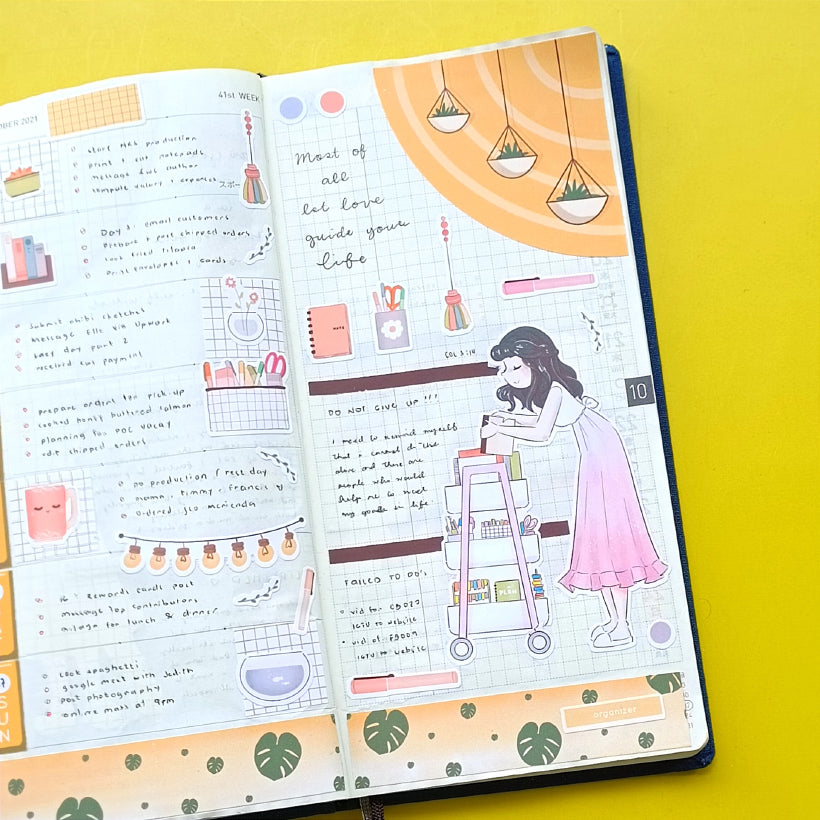 OBER 2021
41st WEEK
start this production
print & cut notepads
message author
compute salary & expenses
スポー
Day 3: email customers
prepare & post shipped orders
cook fried tilapia
print envelopes & cards
submit chibi sketches
message Elle via Upwork
easy day part 2
received payment
prepare orders for pick-up
cooked honey buttered salmon
planning for vacay
edit shipped orders
no production / rest day
mama, timmy, francis
ordered merienda
rewards cards post
message top contributors
milago for lunch & dinner
7
SUN
cook spaghetti
google meet with Judith
post photography
online mass at 9pm
Most of
all
let love
guide your
life
NOTE
COL 3:14
10
DO NOT GIVE UP!!!
I need to remind myself
that I cannot do this
alone and there are
people who would
help me to meet
my goals in life
PLAN
FAILED TO DO's
vid for
IGTV to website
vid of
IGTV to website
organizer